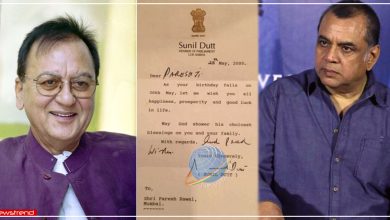 Sunil Dutt
MEMBER OF PARLIAMENT
(LOK SABHA)
25th May, 2005.
Dear PARESH JI
As your birthday falls on
30th May, let me wish you all
happiness, prosperity and good luck
in life.
May God shower his choicest
blessings on you and your family.
With regards,
Yours sincerely,
( SUNIL DUTT )
To,
Shri Paresh Rawal,
Mumbai.
newstrend